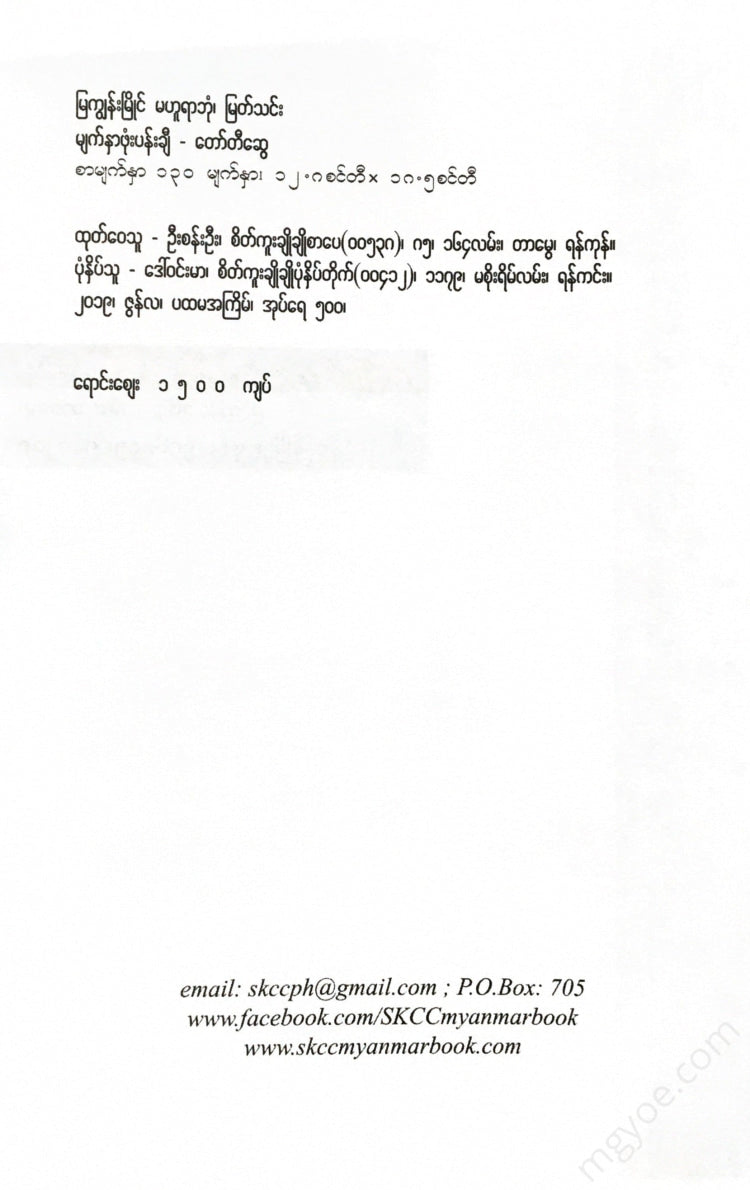 မြကျွန်းမြိုင် မဟူရာဘုံ၊ မြတ်သင်း
မျက်နှာဖုံးပန်းချီ - တော်တီဆွေ
စာမျက်နှာ ၁၃၀ မျက်နှာ၊ ၁၂.၈စင်တီ× ၁၈.၅စင်တီ
ထုတ်ဝေသူ - ဦးစန်းဦး၊ စိတ်ကူးချိုချိုစာပေ(၀၀၅၃၈)၊ ၈၅၊ ၁၆၄လမ်း၊ တာမွေ၊ ရန်ကုန်။
ပုံနှိပ်သူ - ဒေါ်ဝင်းမာ၊ စိတ်ကူးချိုချိုပုံနှိပ်တိုက်(၀၀၄၁၂)၊ ၁၁၇၉၊ မစိုးရိမ်လမ်း၊ ရန်ကင်း။
၂၀၁၉၊ ဇွန်လ၊ ပထမအကြိမ်၊ အုပ်ရေ ၅၀၀၊
ရောင်းဈေး ၁ ၅ ၀ ၀ ကျပ်
email: skccph@gmail.com ; P.O.Box: 705
www.facebook.com/SKCCmyanmarbook
www.skccmyanmarbook.com
mgyoe.com